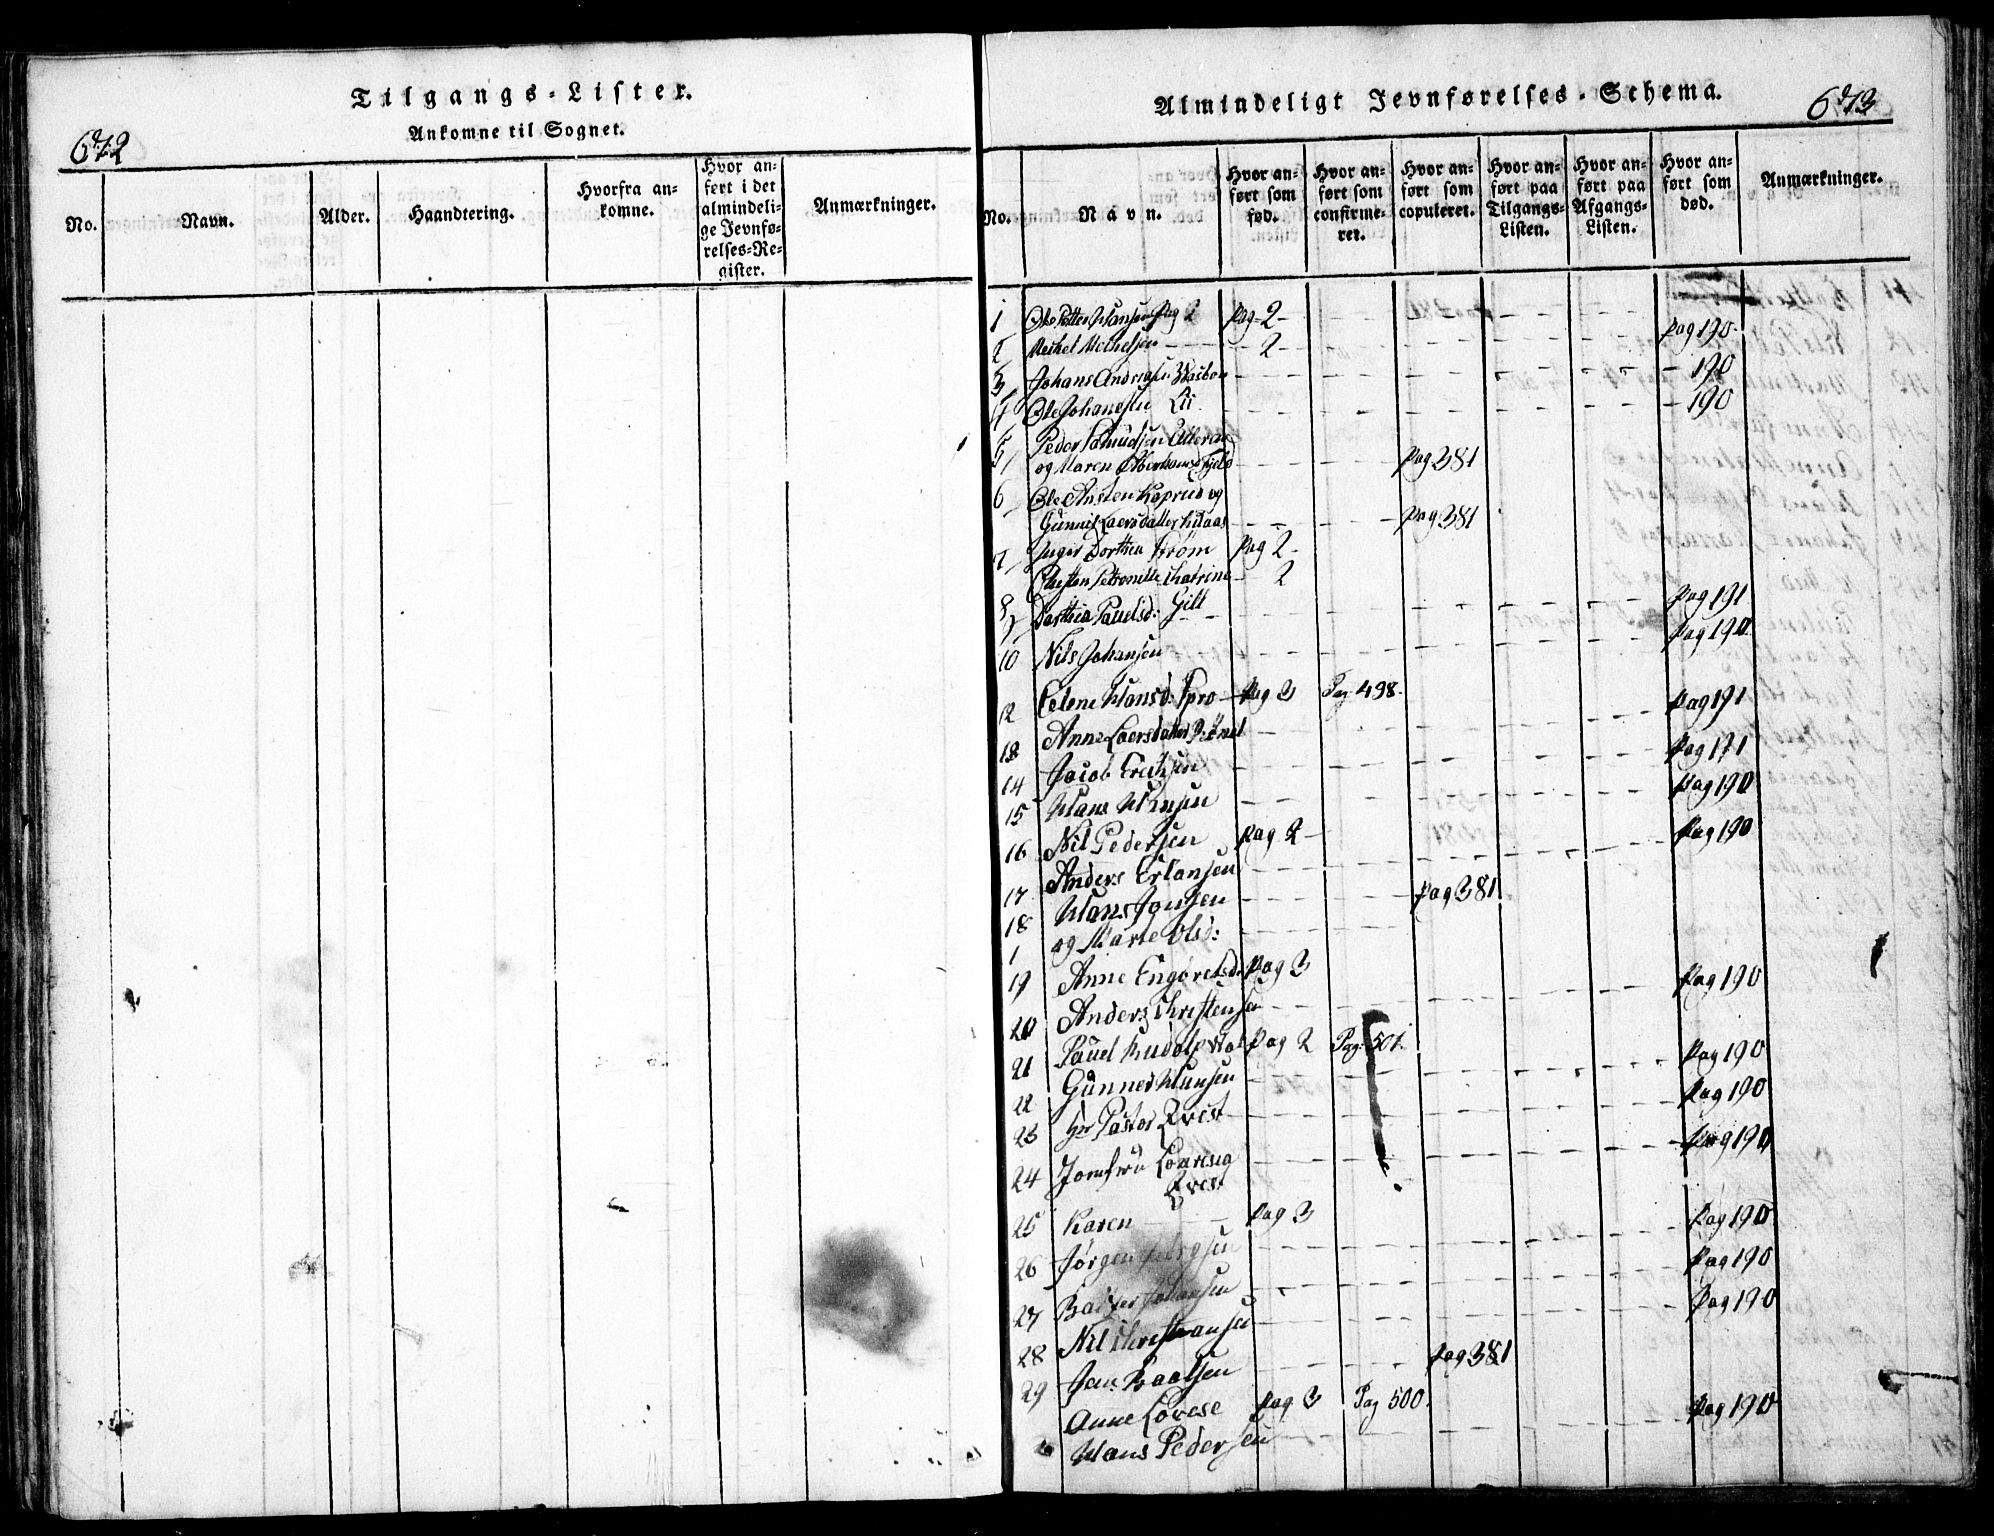 Tilgangs-Lister.
Ankomne til Sognet.
672
No.
Navn.
Alder.
Haandtering.
Hvorfra an-
komne.
Hvor an-
ført i det
almindeli-
ge Jevnfø-
relses-Re-
gister.
Anmærkninger.
Almindeligt Jevnførelses-Schema.
673
No.
Navn.
Hvor an-
ført som
fød.
Hvor an-
ført som
confirme-
ret.
Hvor an-
ført som
copuleret.
Hvor an-
ført paa
Tilgangs-
Listen.
Hvor an-
ført paa
Afgangs-
Listen.
Hvor an-
ført som
død.
Anmærkninger.
1 Ole Petter Hansen Pag 2 Pag 2
2 Mekel Mekelsen 2 pag 190
3 Johans 190
4 Ole Johansen Lii 190
5 Peder
og Maren pag 381
6 Ole og
Gunnil Laersdatter pag 381
7 Inger Dorthea Strøm Pag 2
Petronille Chatrine 2
8 Dorthea Paulsd: Gill Pag 191
10 Nils Johansen Pag 190
12 Elene Hansd: Spro Pag 3 Pag 498
13 Anne Laersdatter pag 191
14 Jacob Erichsen Pag 171
15 Hans Hansen Pag 190
16 Nil Pedersen pag 2
17 Anders Erlansen Pag 190
18 Hans Jonsen pag 381
1 og Marte Olsd:
19 Anne Engøretsd: Pag 3
20 Anders Christensen Pag 190
21 Pauel Rudolp Pag 2 Pag. 501.
22 Gunner Hansen Pag 190
23 Hr Pastor Qvist Pag 190
24 Jomfru Lovise pag 190
Qvist
25 Karen Pag 3
26 Jørgen Pag 190
27 Johansen Pag 190
28 Nil Christiansen Pag 190
29 Jan Paalsen pag 381
Anne Lovise pag 3 Pag 500.
Hans Pedersen pag 190